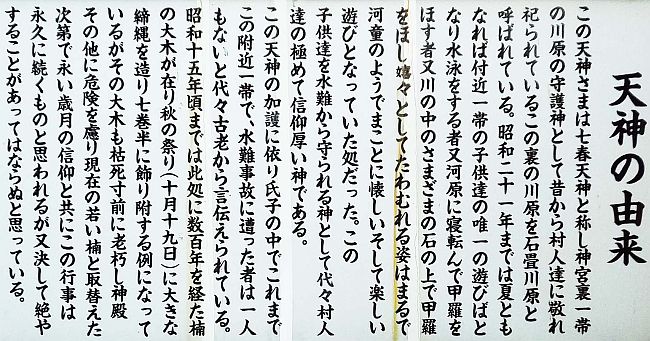 天神の由来
この天神さまは七春天神と称し神宮裏一帯
の川原の守護神として昔から村人達に敬れ
祀られているこの裏の川原を石畳川原と
呼ばれている。昭和二十一年までは夏とも
なれば付近一帯の子供達の唯一の遊びばと
なり水泳をする者又河原に寝転んで甲羅を
ほす者又川の中のさまざまの石の上で甲羅
をほし嬉々としてたわむれる姿はまるで
河童のようでまことに懐しいそして楽しい
遊びとなっていた処だった。この
子供達を水難から守られる神として代々村人
達の極めて信仰厚い神である。
この天神の加護に依り氏子の中でこれまで
この附近一帯で、水難事故に遭った者は一人
もないと代々古老から言伝えられている。
昭和十五年頃までは此処に数百年を経た楠
の大木が在り秋の祭り(十月十九日)に大きな
締縄を造り七巻半に飾り附する例になって
いるがその大木も枯死寸前に老朽し神殿
その他に危険を慮り現在の若い楠と取替えた
次第で永い歳月の信仰と共にこの行事は
永久に続くものと思われるが又決して絶や
することがあってはならぬと思っている。